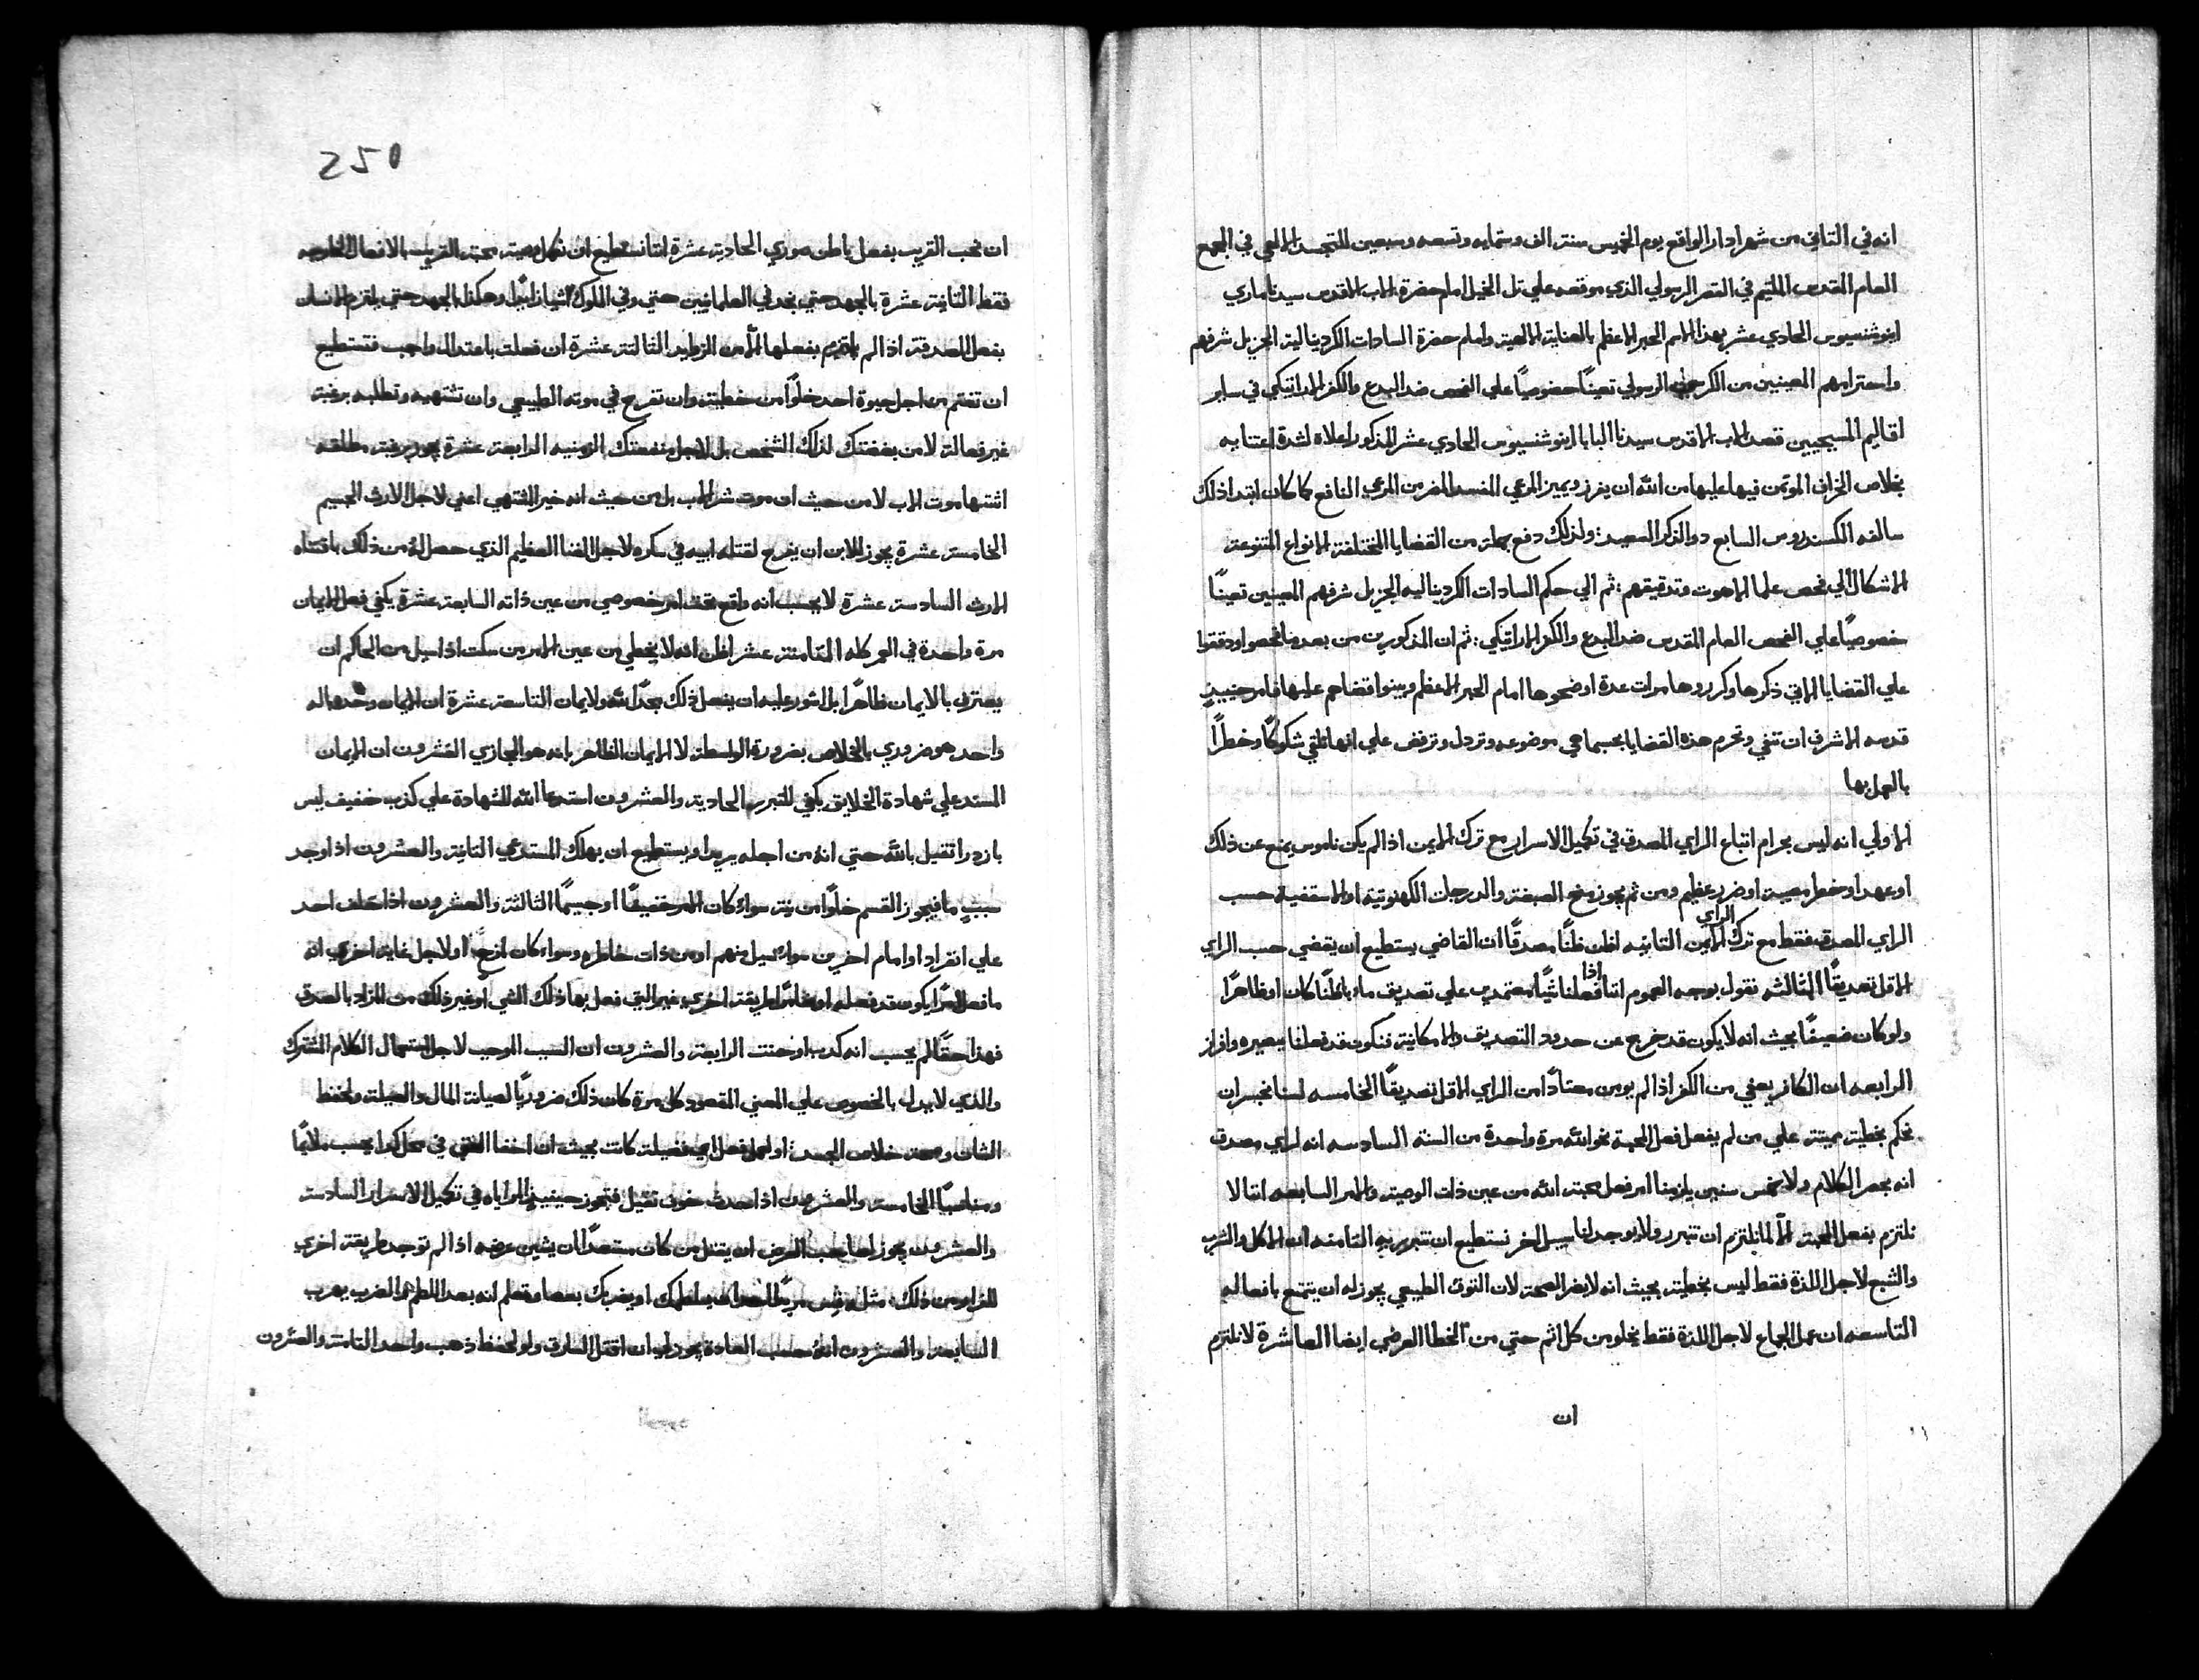 انه في التاني من شهر ادار الواقع يوم الخميس سنة الف وستمايه وتسعه وسبعين للتجسد الالهي في المجمع
العام المقدس الملتيم في القصر الرسولي الذي موقعه علي تل الخيل امام حضرة الاب الاقدس سيدنا ماري
اينوشنسيوس الحادي عشر بهذا الاسم الحبر الاعظم بالعناية الالهية وامام حضرة السادات الكردينالية الجزيل شرفهم
واحترامهم المعينين من الكرسي الرسولي تعينًا خصوصيًا علي الفحص ضد البدع والكفر الاراتيكي في ساير
اقاليم المسيحيين قصد الاب الاقدس سيدنا البابا اينوشنسيوس الحادي عشر المذكور اعلاه لشدة اعتنايه
بخلاص الخراف الموتمن فيها عليها من الله ان يفرز ويميز المرعي المفسد المضر من المرعي النافع كما كان ابتدا ذلك
سالفه الكسندروس السابع ذو الذكر السعيد: ولذلك دفع جملة من القضايا المختلفة الانواع المتنوعة
الاشكال الي فحص علما اللاهوت وتدقيقهم: ثم الي حكم السادات الكرديناليه الجزيل شرفهم المعينين تعينًا
خصوصيًا علي الفحص العام المقدس ضد البدع والكفر الاراتيكي: ثم ان المذكورين من بعد ما فحصوا ودققوا
علي القضايا الاتي ذكرها وكرروها مرات عدة اوضحوها امام الحبر الاعظم وبينوا قضاهم عليها فامر حينيذٍ
قدسه الاشرف ان تنفي وتحرم هذه القضايا بحسبما هي موضوعه وتردل وترفض علي انها تلقي شكوكًا وخطرًا
بالعمل بها
الاولي انه ليس بحرام اتباع الراي المصدق في تكميل الاسرار مع ترك الايمن اذا لم يكن ناموس يمنع عن ذلك
او عهد او خطر مصيبة او ضرر عظيم ومن ثم يجوز منح الصبغة والدرجات الكهنوتية او الاسقفية حسب
الراي المصدق فقط مع ترك الراي الايمن التانيه اظن ظنًا مصدقًا ان القاضي يستطيع ان يقضي حسب الراي
الاقل تصديقًا الثالثه نقول بوجه العموم اننا اذا فعلنا شيًا معتمدين علي تصديق ما باطنًا كان او ظاهرًا
ولو كان ضعيفًا بحيث انه لا يكون قد خرج عن حدود التصديق والامكانية فنكون قد فعلنا ببصيره وافراز
الرابعه ان الكافر يعفي من الكفر اذا لم يومن معتادًا من الراي الاقل تصديقًا الخامسه لسنا نجسر ان
نحكم بخطية مميتة علي من لم يفعل فعل المحبة نحو الله مرة واحدة من السنة السادسه انه لراي مصدق
انه بحصر الكلام ولا خمس سنين يلزمنا امر فعل محبة الله من عين ذات الوصية والامر السابعه اننا لا
نلتزم بفعل المحبة الا لما نلتزم ان نتبرر ولا يوجد لنا سبيل اخر نستطيع ان نتبرر به الثامنه ان الاكل والشرب
والشبع لاجل اللذة فقط ليس بخطية بحيث انه لا يضر الصحة لان التوق الطبيعي يجوز له ان يتمتع بافعاله
التاسعه ان عمل الجماع لاجل اللذة فقط يخلو من كل اثم حتي من الخطا العرضي ايضا العاشرة لا نلتزم
ان
250
ان نحب القريب بفعل باطن صوري الحادية عشرة اننا نستطيع ان نكمل وصية محبة القريب بالافعال الخارجه
فقط التانية عشرة بالجهد حتي نجد في العلمانيين حتي وفي الملوك شيا زايدًا وهكذا بالجهد حتي يلتزم الانسان
بفعل الصدقة اذا لم يلتزم بفعلها الا من الزوايد الثالثة عشرة ان فعلت باعتدال واجب فتستطيع
ان تغتم من اجل حيوة احد خلوًا من خطية وان تفرح في موته الطبيعي وان تشتهيه وتطلبه برغبة
غير فعالة لا من بغضتك لذلك الشخص بل لاجل منفعتك الزمنيه الرابعة عشرة يجوز برغبة مطلقه
اشتها موت الاب لا من حيث ان موت شر للاب بل من حيث انه خير للمشتهي اعني لاجل الارث الجسيم
الخامسة عشرة يجوز للابن ان يفرح لقتله ابيه في سكره لاجل الغنا العظيم الذي حصل له من ذلك باقتناه
الارث السادسة عشرة لا يحسب انه واقع تحت امر خصوصي من عين ذاته السابعة عشرة يكفي فعل الايمان
مرة واحدة في العمر كله الثامنة عشر اظن انه لا يخطي من عين الامر من سكت اذا سيل من الحاكم ان
يعترف بالايمان ظاهرًا بل اشور عليه ان يفعل ذلك مجدًا لله وللايمان التاسعة عشرة ان الايمان وحده باله
واحد هو ضروري بالخلاص بضرورة الواسطة لا الايمان الظاهر بانه هو المجازي العشرون ان الايمان
المستند علي شهادة الخلايق يكفي للتبرير الحادية والعشرون استدعا الله للشهادة علي كذب خفيف ليس
بازدرا ثقيل بالله حتي انه من اجله يريد او يستطيع ان يهلك المستدعي التانية والعشرون اذا وجد
سببٍ ما فيجوز القسم خلوًا من نية سواء كان الامر خفيفًا او جسيمًا الثالثة والعشرون اذا حلف احد
علي انفراد او امام اخرين سواء سيل منهم او من ذات خاطره وسواء كان او لاجل غاية اخري انه
ما فعل امرًا يكون قد فعله طريقة اخري غير التي فعل بها ذلك الشي او غير ذلك من المزاد بالصدق
فهذا حقًا لم يحسب انه كدب او حنث الرابعة والعشرون ان السبب الموجب لاجل استعمال الكلام المشترك
والذي لا يدل بالخصوص علي المعني المقصود كل مرة كان ذلك ضروريًا لصيانة المال والعيلة ولحفظ
الشان وصحة خلاص الجسد: او لعمل فعل اي فضيلة كانت بحيث ان اخفا الحق في محل كذا يحسب ملايمًا
ومناسبًا الخامسة والعشرون اذا حدث خوف ثقيل فتجوز حينيذٍ المراياه في تكميل الاسرار السادسة
والعشرون يجوز لصاحب العرض ان يقتل من كان مستعدًا ان يشين عرضه اذا لم توجد طريقة اخري
للفرار من ذلك: مثل بلطمك او يضربك بعصا وتعلم انه بعد اللطم او الضرب يهرب
السابعة والعشرون انه حسب العادة يجوز لي ان اقتل السارق ولو لحفظ ذهب واحد الثامنة والعشرون